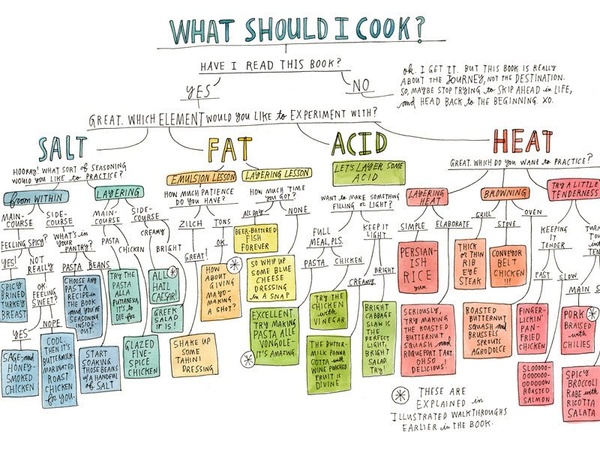 WHAT SHOULD I COOK?
HAVE I READ THIS BOOK?
YES
NO
OK. I GET IT. BUT THIS BOOK IS REALLY
ABOUT THE JOURNEY, NOT THE DESTINATION.
SO, MAYBE STOP TRYING to SKIP AHEAD in LIFE,
and HEAD BACK to THE BEGINNING. XO.
GREAT. WHICH ELEMENT WOULD YOU LIKE to EXPERIMENT WITH?
SALT
HOORAY! WHAT SORT of SEASONING
WOULD YOU LIKE to PRACTICE?
from WITHIN
LAYERING
MAIN-
COURSE
SIDE-
COURSE
FEELING SPICY?
YES!
NOT
REALLY
SPICY
BRINED
TURKEY
BREAST
OK
FEELING
SWEET?
YES
NOPE
SAGE- and
HONEY-
SMOKED
CHICKEN
COOL.
THEN IT'S
BUTTERMILK-
MARINATED
ROAST
CHICKEN
for YOU.
WHAT'S in
YOUR
PANTRY?
PASTA
BEANS
CHOOSE ANY
PASTA
RECIPE
IN THE BOOK
and YOU'RE
SEASONIN'
INSIDE-
OUT.
START
COOKING
THOSE BEANS
w/ A HANDFUL
of SALT
MAIN-
COURSE
SIDE-
COURSE
PASTA
CHICKEN
TRY THE
PASTA
alla
PUTTANESCA,
IT'S to-
DIE-for
GLAZED
FIVE-
SPICE
CHICKEN
CREAMY
BRIGHT
ALL
HAIL
CAESAR!
GREEK
SALAD
IT IS!
FAT
EMULSION LESSON
LAYERING LESSON
HOW MUCH PATIENCE
DO YOU HAVE?
ZILCH
TONS
GREAT!
OK
SHAKE UP
SOME
TAHINI
DRESSING
HOW
ABOUT
GIVING
MAYO-
MAKING
A SHOT?
HOW MUCH
TIME YOU
GOT?
ALL DAY
NONE
BEER-BATTERED
FISH
FOREVER
SO WHIP UP
SOME BLUE
CHEESE
DRESSING
IN A SNAP
EXCELLENT.
TRY MAKING
PASTA ALLE
VONGOLE.
IT'S AMAZING.
ACID
LET'S LAYER SOME
ACID
WANT to MAKE SOMETHING
FILLING or LIGHT?
FULL
MEAL, PLS.
KEEP IT
LIGHT
PASTA
CHICKEN
CREAMY
BRIGHT
TRY THE
CHICKEN
with
VINEGAR
BRIGHT
CABBAGE
SLAW IS
THE
PERFECT
LIGHT,
BRIGHT
SALAD.
TRY!
HEAT
GREAT. WHICH DO YOU WANT to PRACTICE?
LAYERING
HEAT
BROWNING
TRY A LITTLE
TENDERNESS
SIMPLE
ELABORATE
PERSIAN-
ISH
RICE
SERIOUSLY,
TRY MAKING
THE ROASTED
BUTTERNUT
SQUASH and
ROQUEFORT TART.
OH SO
DELICIOUS!
GRILL
STOVE
OVEN
THICK or
THIN
RIB
EYE
STEAK
CONVEYOR
BELT
CHICKEN
!!!
ROASTED
BUTTERNUT
SQUASH and
BRUSSELS
SPROUTS
AGRODOLCE
FINGER-
LICKIN'
PAN-
FRIED
CHICKEN
KEEPING
IT
TENDER
FAST
SLOW
MAIN
SLOOOOO-
OOOOOOO
OOOOOW
ROASTED
SALMON
PORK
BRAISED
with
CHILIES
SPICY
BROCCOLI
RABE with
RICOTTA
SALATA
THESE ARE
EXPLAINED in
ILLUSTRATED WALKTHROUGHS
EARLIER in the BOOK.